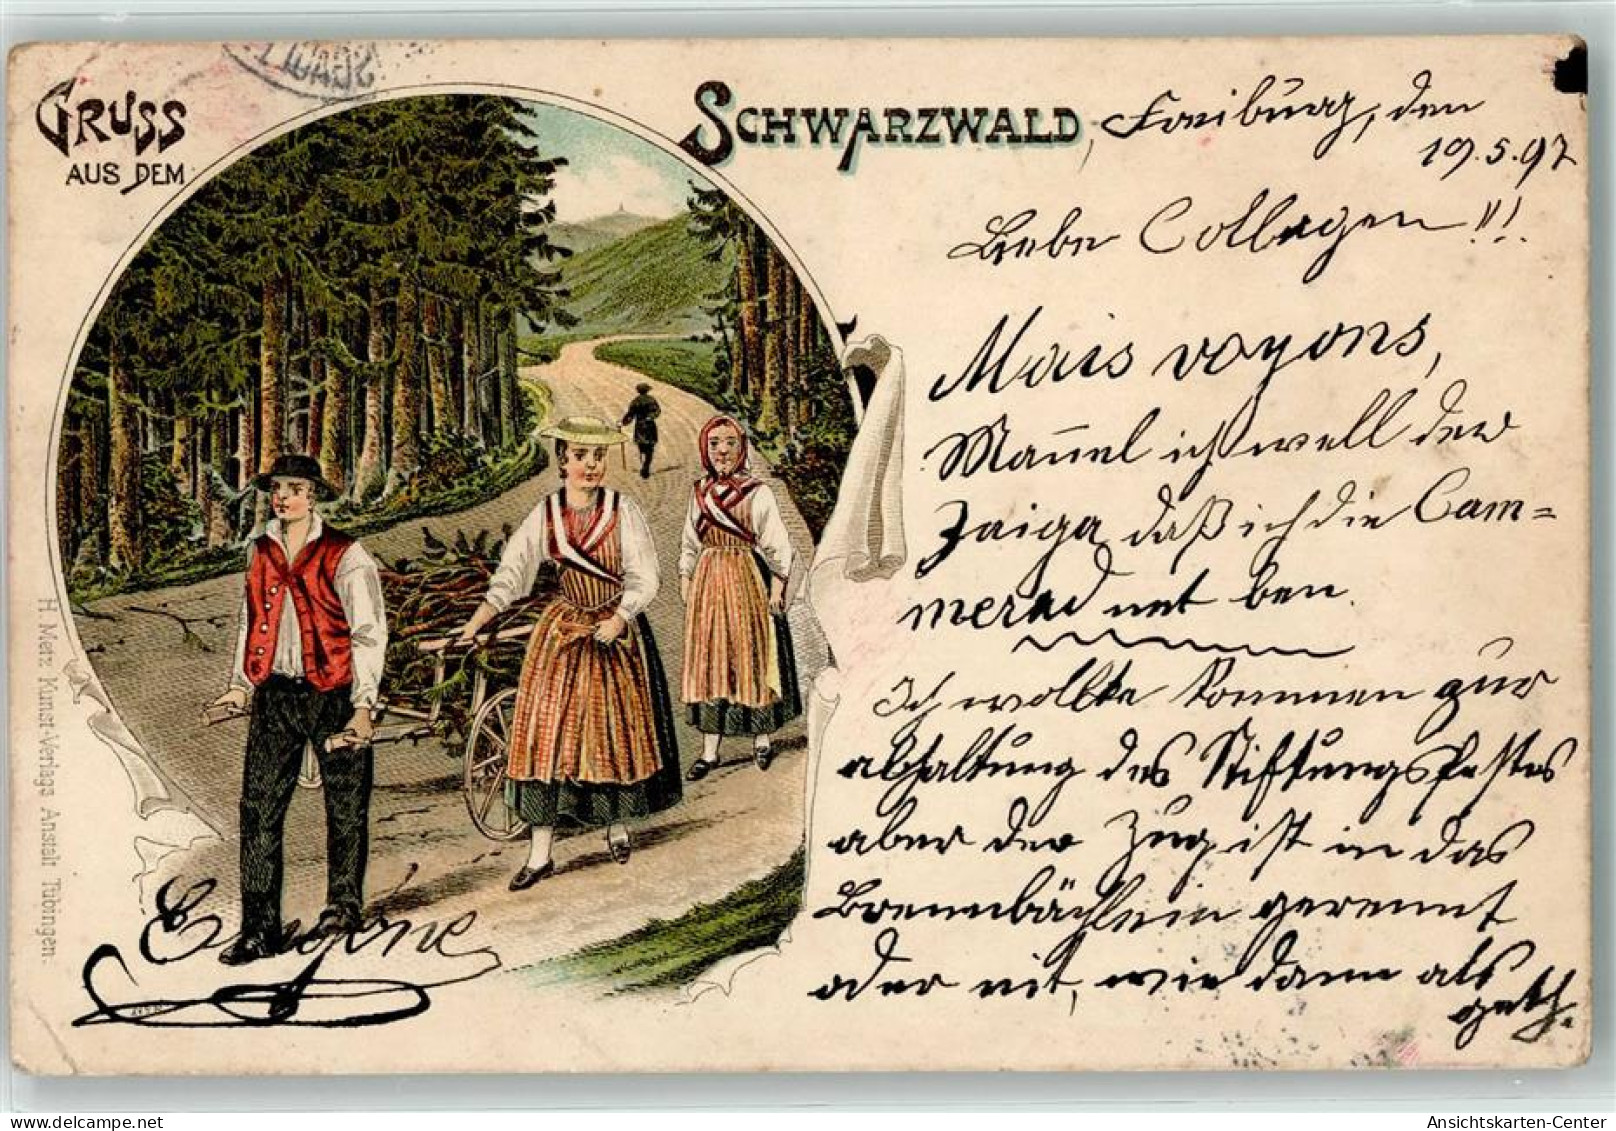 GRUSS
AUS DEM
SCHWARZWALD
Freiburg, den
19.5.97
Liebe Collegen!!!
Mais voyons,
Mannel ich well der
Zaiga daß ich die Cam=
merad net ben.
Ich wollte kommen zur
abhaltung des Stiftungsfestes
aber der Zug ist in das
Brennbächlein gerennt
oder nit, wie dann als
geth.
Eugène
H. Metz Kunst-Verlags Anstalt Tübingen.
Ansichtskarten-Center